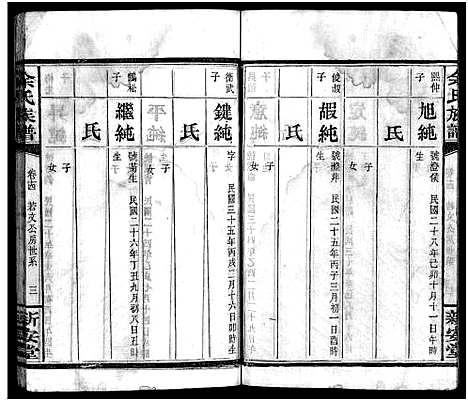 余氏族譜
新安堂
熙仲
子
旭純
氏
生子
女
號澄侯 民國二十八年己卯十月十一日午時
俊叔
子
嘏純
氏
生子
女
號澄井 民國二十五年丙子三月初一日酉時
衛武
子
鍵純
氏
子
女
字 民國三十五年丙戌二月十六日卯時生
鶴松
子
繼純
氏
生子
女
號菊生 民國二十六年丁丑九月初八日丑時
余氏族譜
卷十四 若文公房世系 三
新安堂